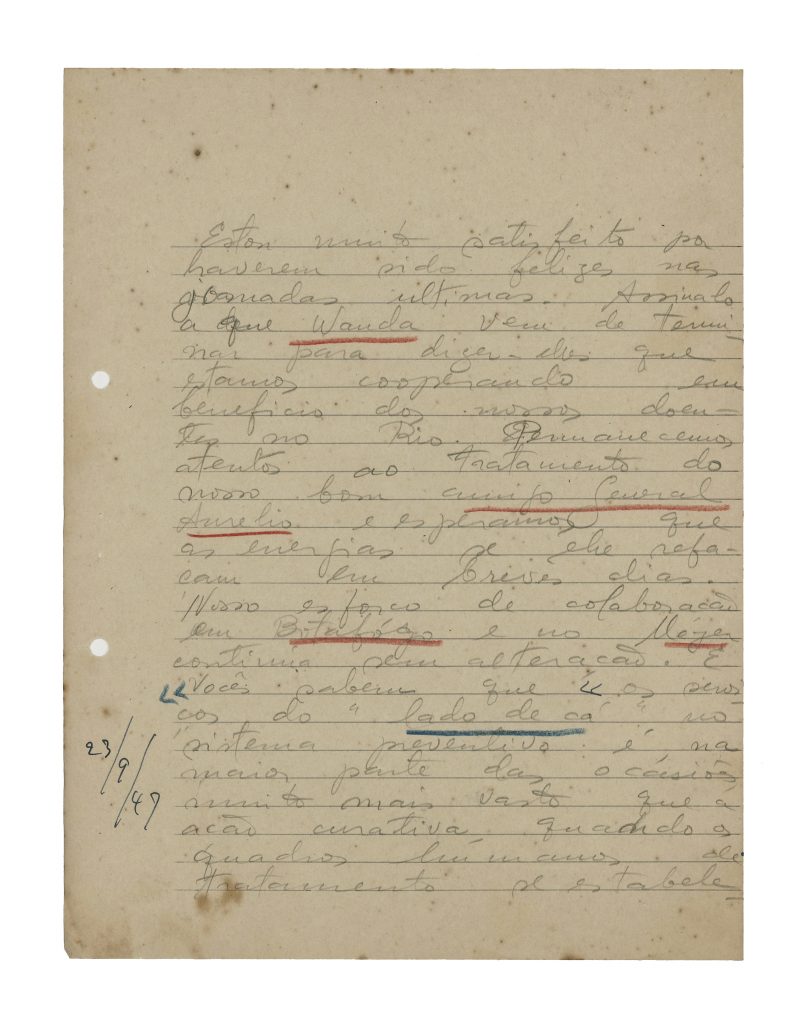 Estou muito satisfeito por
haverem sido felizes nas
jornadas ultimas. Assinalo
a que Wanda vem de termi-
nar para dizer-lhes que
estamos cooperando em
beneficio dos nossos doen-
tes no Rio. Permanecemos
atentos ao tratamento do
nosso bom amigo General
Aurelio e esperamos que
as energias se lhe refa-
çam em breves dias.
Nosso esforço de colaboração
em Botafógo e no Méyer
continua sem alteração. E
"Vocês sabem que " os servi-
ços do " lado de cá " no
"sistema preventivo é na
maior parte das ocasiões
muito mais vasto que a
ação curativa, quando os
quadros humanos de
tratamento se estabele-
23/9/47